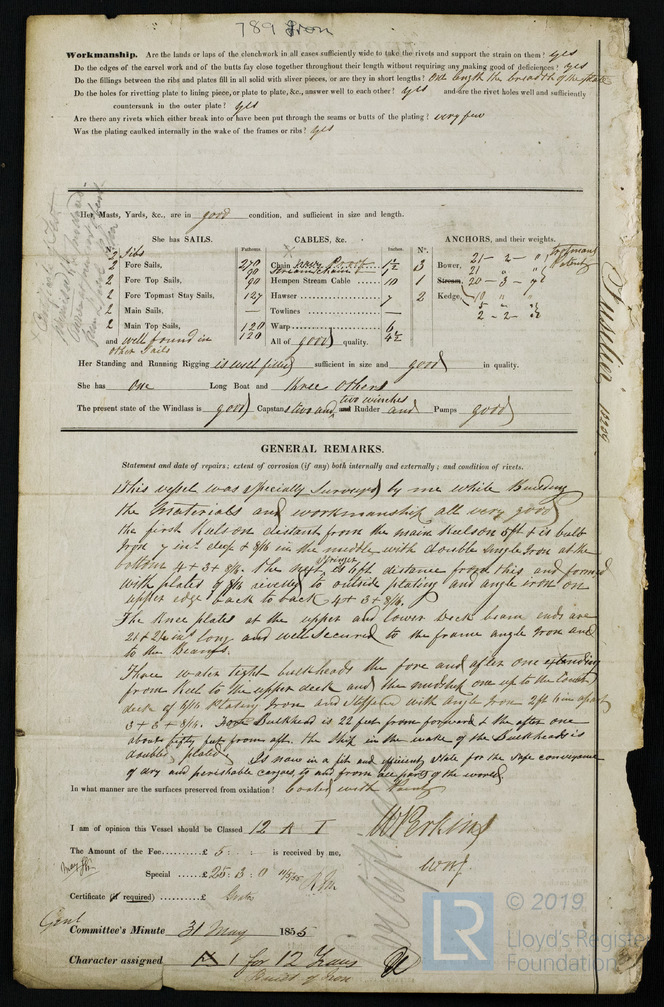 789 Iron
Workmanship. Are the lands or laps of the clenchwork in all cases sufficiently wide to take the rivets and support the strain on them? yes
Do the edges of the carvel work and of the butts fay close together throughout their length without requiring any making good of deficiences? yes
Do the fillings between the ribs and plates fill in all solid with sliver pieces, or are they in short lengths? One length the breadth of the plate
Do the holes for rivetting plate to lining piece, or plate to plate, &c., answer well to each other? yes and are the rivet holes well and sufficiently
countersunk in the outer plate? yes
Are there any rivets which either break into or have been put through the seams or butts of the plating? very few
Was the plating caulked internally in the wake of the frames or ribs? yes
Her Masts, Yards, &c., are in good condition, and sufficient in size and length.
She has SAILS. CABLES, &c. ANCHORS, and their weights.
N°. Fathoms Inches. N°.
2 Jibs
2 Fore Sails, 270 Chain 1½ 3 Bower, 21 - 2 - "
90 Stream chain 21 " "
2 Fore Top Sails, 90 Hempen Stream Cable 10 1 Stream 20 - 3 -
2 Fore Topmast Stay Sails, 127 Hawser 7 2 Kedge, 10 "
2 Main Sails, — Towlines —
2 Main Top Sails, 120 Warp 6 2 - 2 -
and well found in 120 All of good quality. 4½
other Sails
Her Standing and Running Rigging is well fitted sufficient in size and good in quality.
She has one Long Boat and three others
The present state of the Windlass is good Capstan two and two winches and Rudder and Pumps good
Fusilier 13209
GENERAL REMARKS.
Statement and date of repairs; extent of corrosion (if any) both internally and externally; and condition of rivets.
This vessel was specially surveyed by me while Building
the Materials and workmanship all very good
the first Keelson distant from the main Keelson 5ft & is bulb
Iron 7 ins deep & 8/16 in the middle with double angle Iron at the
bottom 4 + 3 + 8/16. the next Stringer is 6ft distance from this and formed
with plates of 8/16 rivetted to outside plating and angle iron on
upper edge back to back 4 + 3 + 8/16.
The Knee plates at the upper and lower Deck beam ends are
long and well secured to the frame angle Iron and
to the Beams.
Three water tight bulkheads the fore and after one extending
from Keel to the upper deck and the midship one up to the lower
deck of 5/16 Plating Iron and stiffened with angle Iron 2ft 6in apart
3 + 3 + 8/16. Fore Bulkhead is 22 feet from forward & the after one
about fifty feet from aft. the Ship in the wake of the Bulkheads is
doubled plated Is now in a fit and efficient state for the safe conveyance
of dry and perishable cargoes to and from all parts of the world
In what manner are the surfaces preserved from oxidation? Coated with Paint
I am of opinion this Vessel should be Classed 12 A I W Perkins
The Amount of the Fee...........£ 5 : is received by me,
Special ......£ 25 : 3 : 0
Certificate (if required) ...........£ Gratis
Committee's Minute 31 May 1855
Character assigned A 1 for 12 Years
Built of Iron
LR © 2019
Lloyd's Register
Foundation